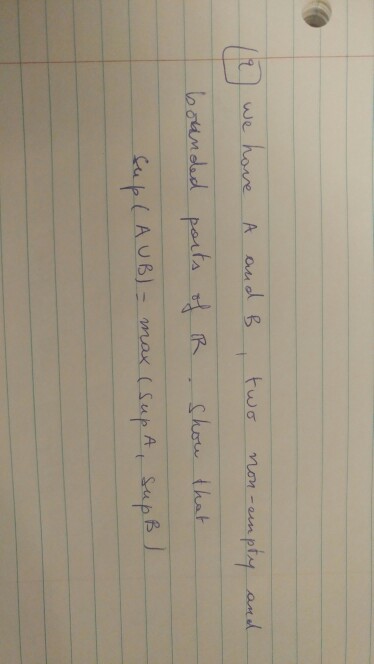 9 We have A and B, two non-empty and
bounded parts of ℝ. Show that
Sup(A∪B) = max(SupA, SupB)